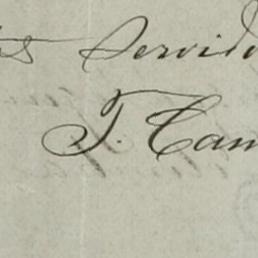 Servido
T. Cam